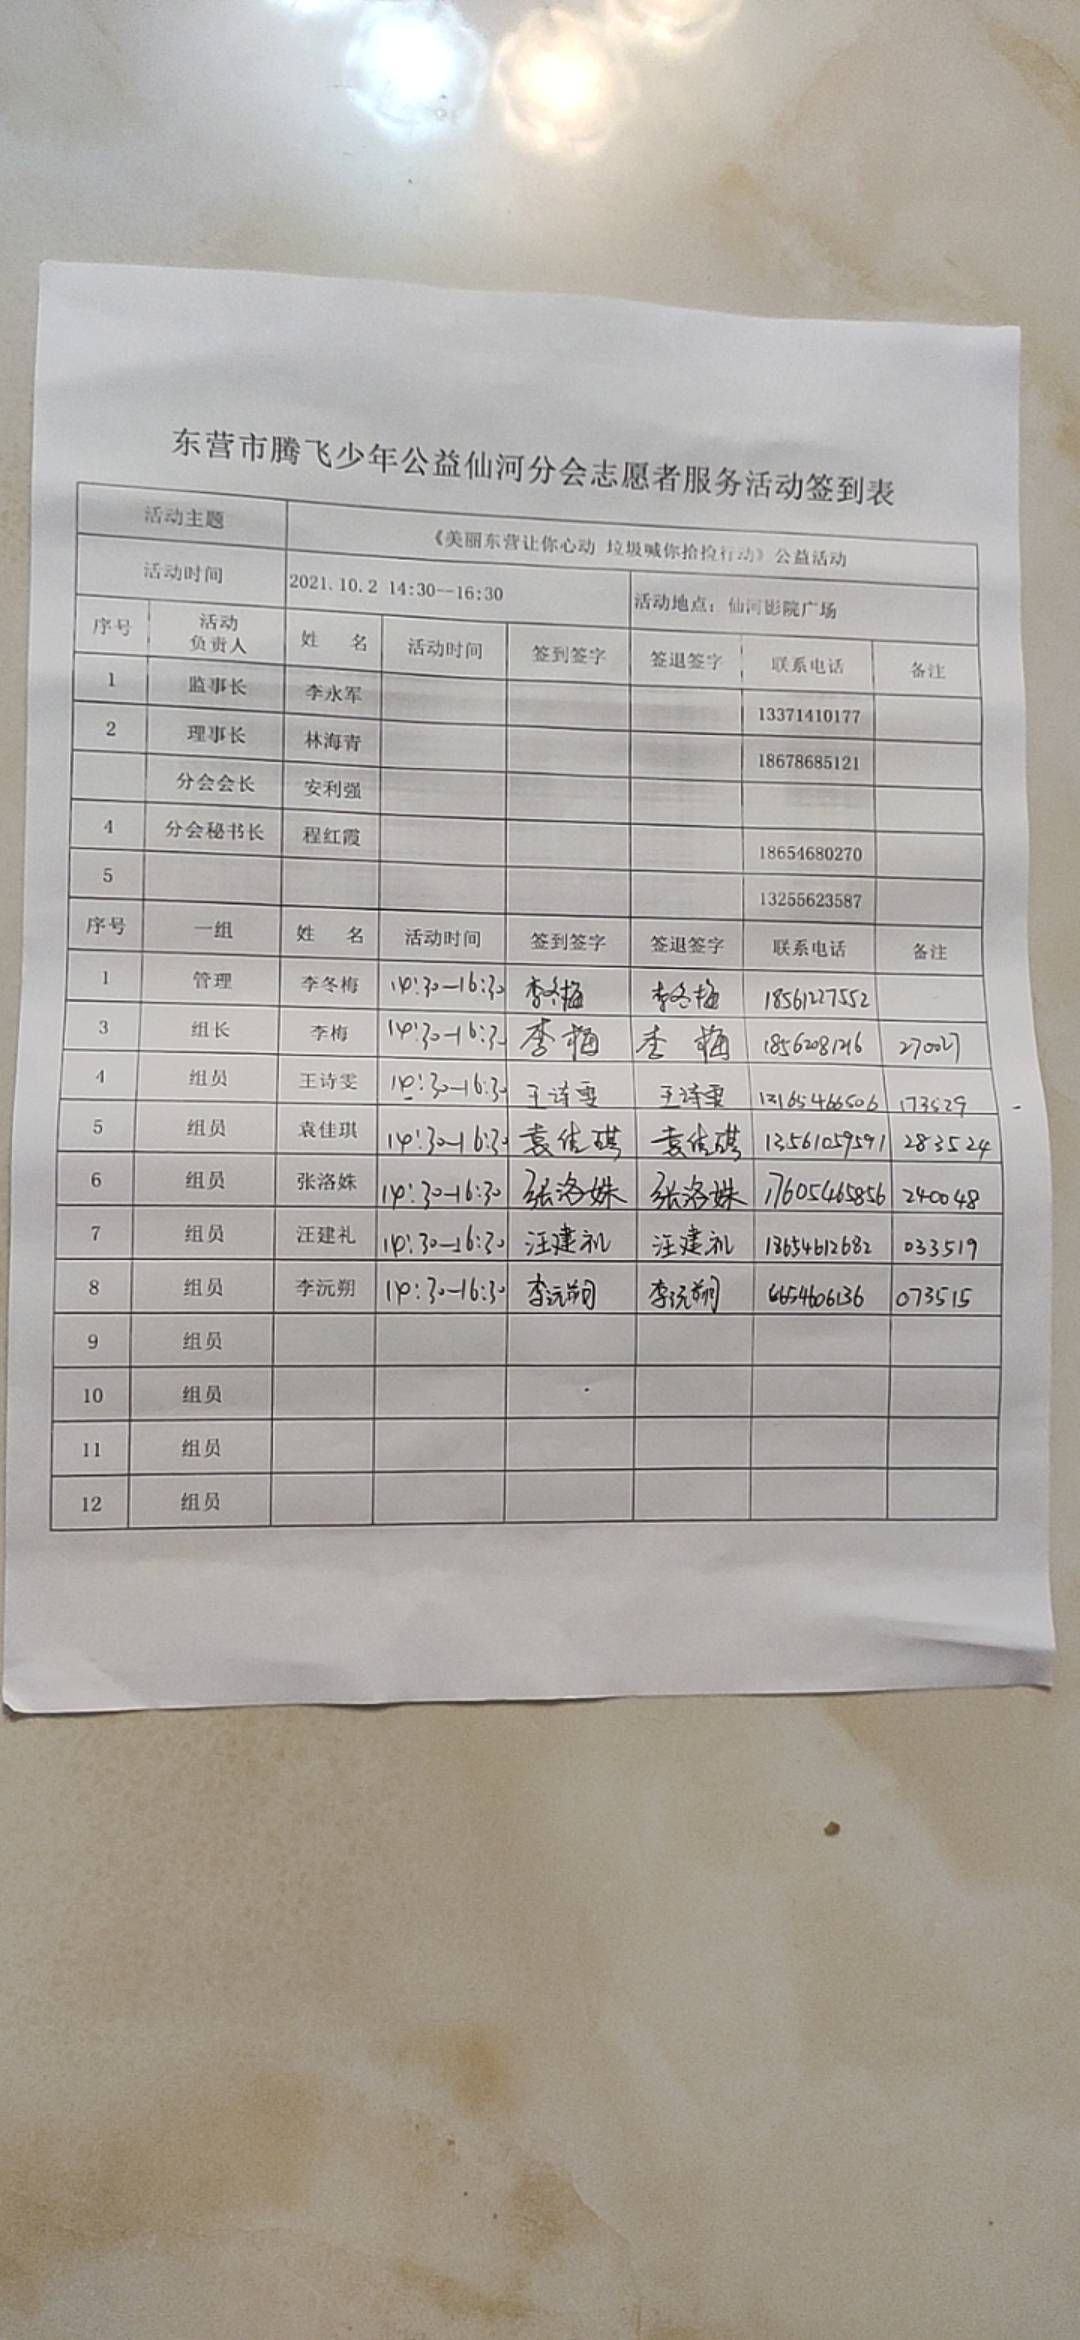 东营市腾飞少年公益仙河分会志愿者服务活动签到表
活动主题 《美丽东营让你心动 垃圾喊你拾捡行动》公益活动
活动时间 2021.10.2 14:30--16:30 活动地点：仙河影院广场
序号 活动负责人 姓 名 活动时间 签到签字 签退签字 联系电话 备注
1 监事长 李永军 13371410177
2 理事长 林海青 18678685121
分会会长 安利强
4 分会秘书长 程红霞 18654680270
5 13255623587
序号 一组 姓 名 活动时间 签到签字 签退签字 联系电话 备注
1 管理 李冬梅 14:30—16:30 李冬梅 李冬梅 18561227552
3 组长 李梅 14:30—16:30 李梅 李梅 18562081216 270027
4 组员 王诗雯 14:30—16:30 王诗雯 王诗雯 13165466506 173529
5 组员 袁佳琪 14:30—16:30 袁佳琪 袁佳琪 13561059591 283524
6 组员 张洛姝 14:30—16:30 张洛姝 张洛姝 17605465856 240048
7 组员 汪建礼 14:30—16:30 汪建礼 汪建礼 18654612682 033519
8 组员 李沅朔 14:30—16:30 李沅朔 李沅朔 073515
9 组员
10 组员
11 组员
12 组员